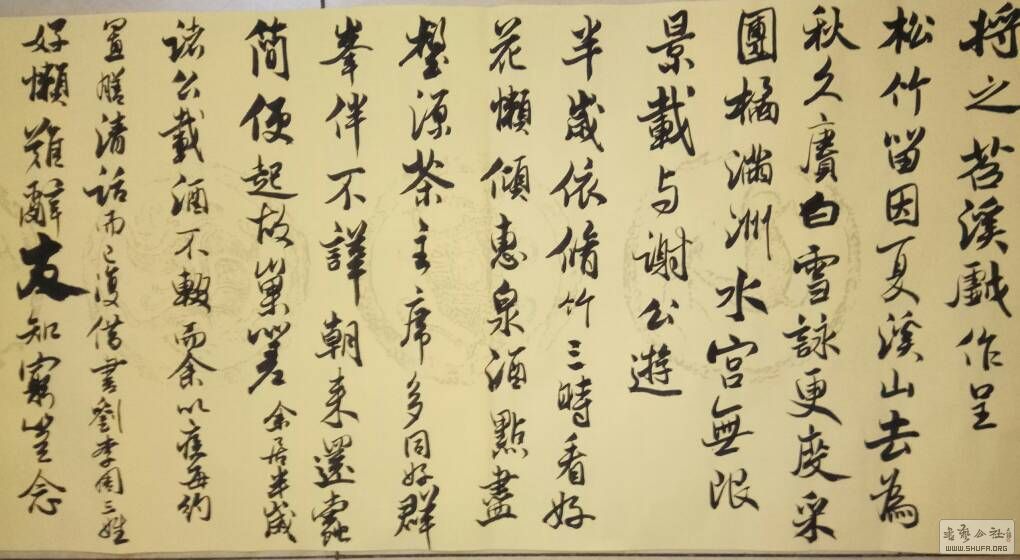 将之苕溪戲作呈
松竹留因夏溪山去為
秋久賡白雪詠更度采
團橘滿洲水宮無限
景載与謝公遊
半歲依脩竹三時看好
花懶傾惠泉酒點盡
壑源茶主席多同好群
峯伴不譁朝来還蠹
簡便起故巢嗟余居半歲
諸公載酒不輟而余以疾每約
置膳清話而已復借書劉李周三姓
好懶難辭友知窮豈念
書艺公社
WWW.SHUFA.ORG